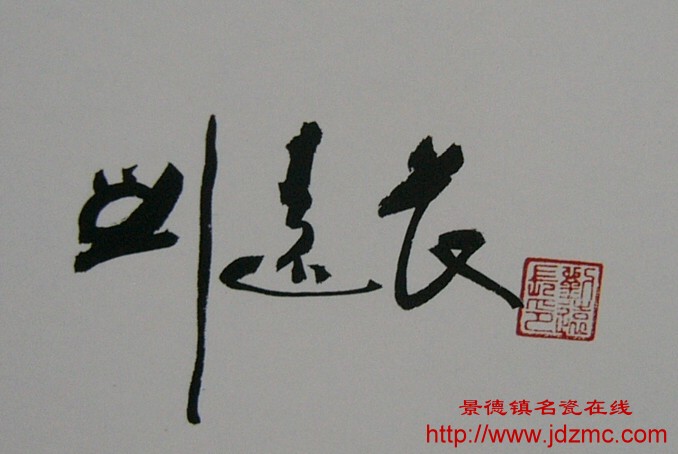 刘远长
劉遠長印
景德镇名瓷在线
http://www.jdzmc.com